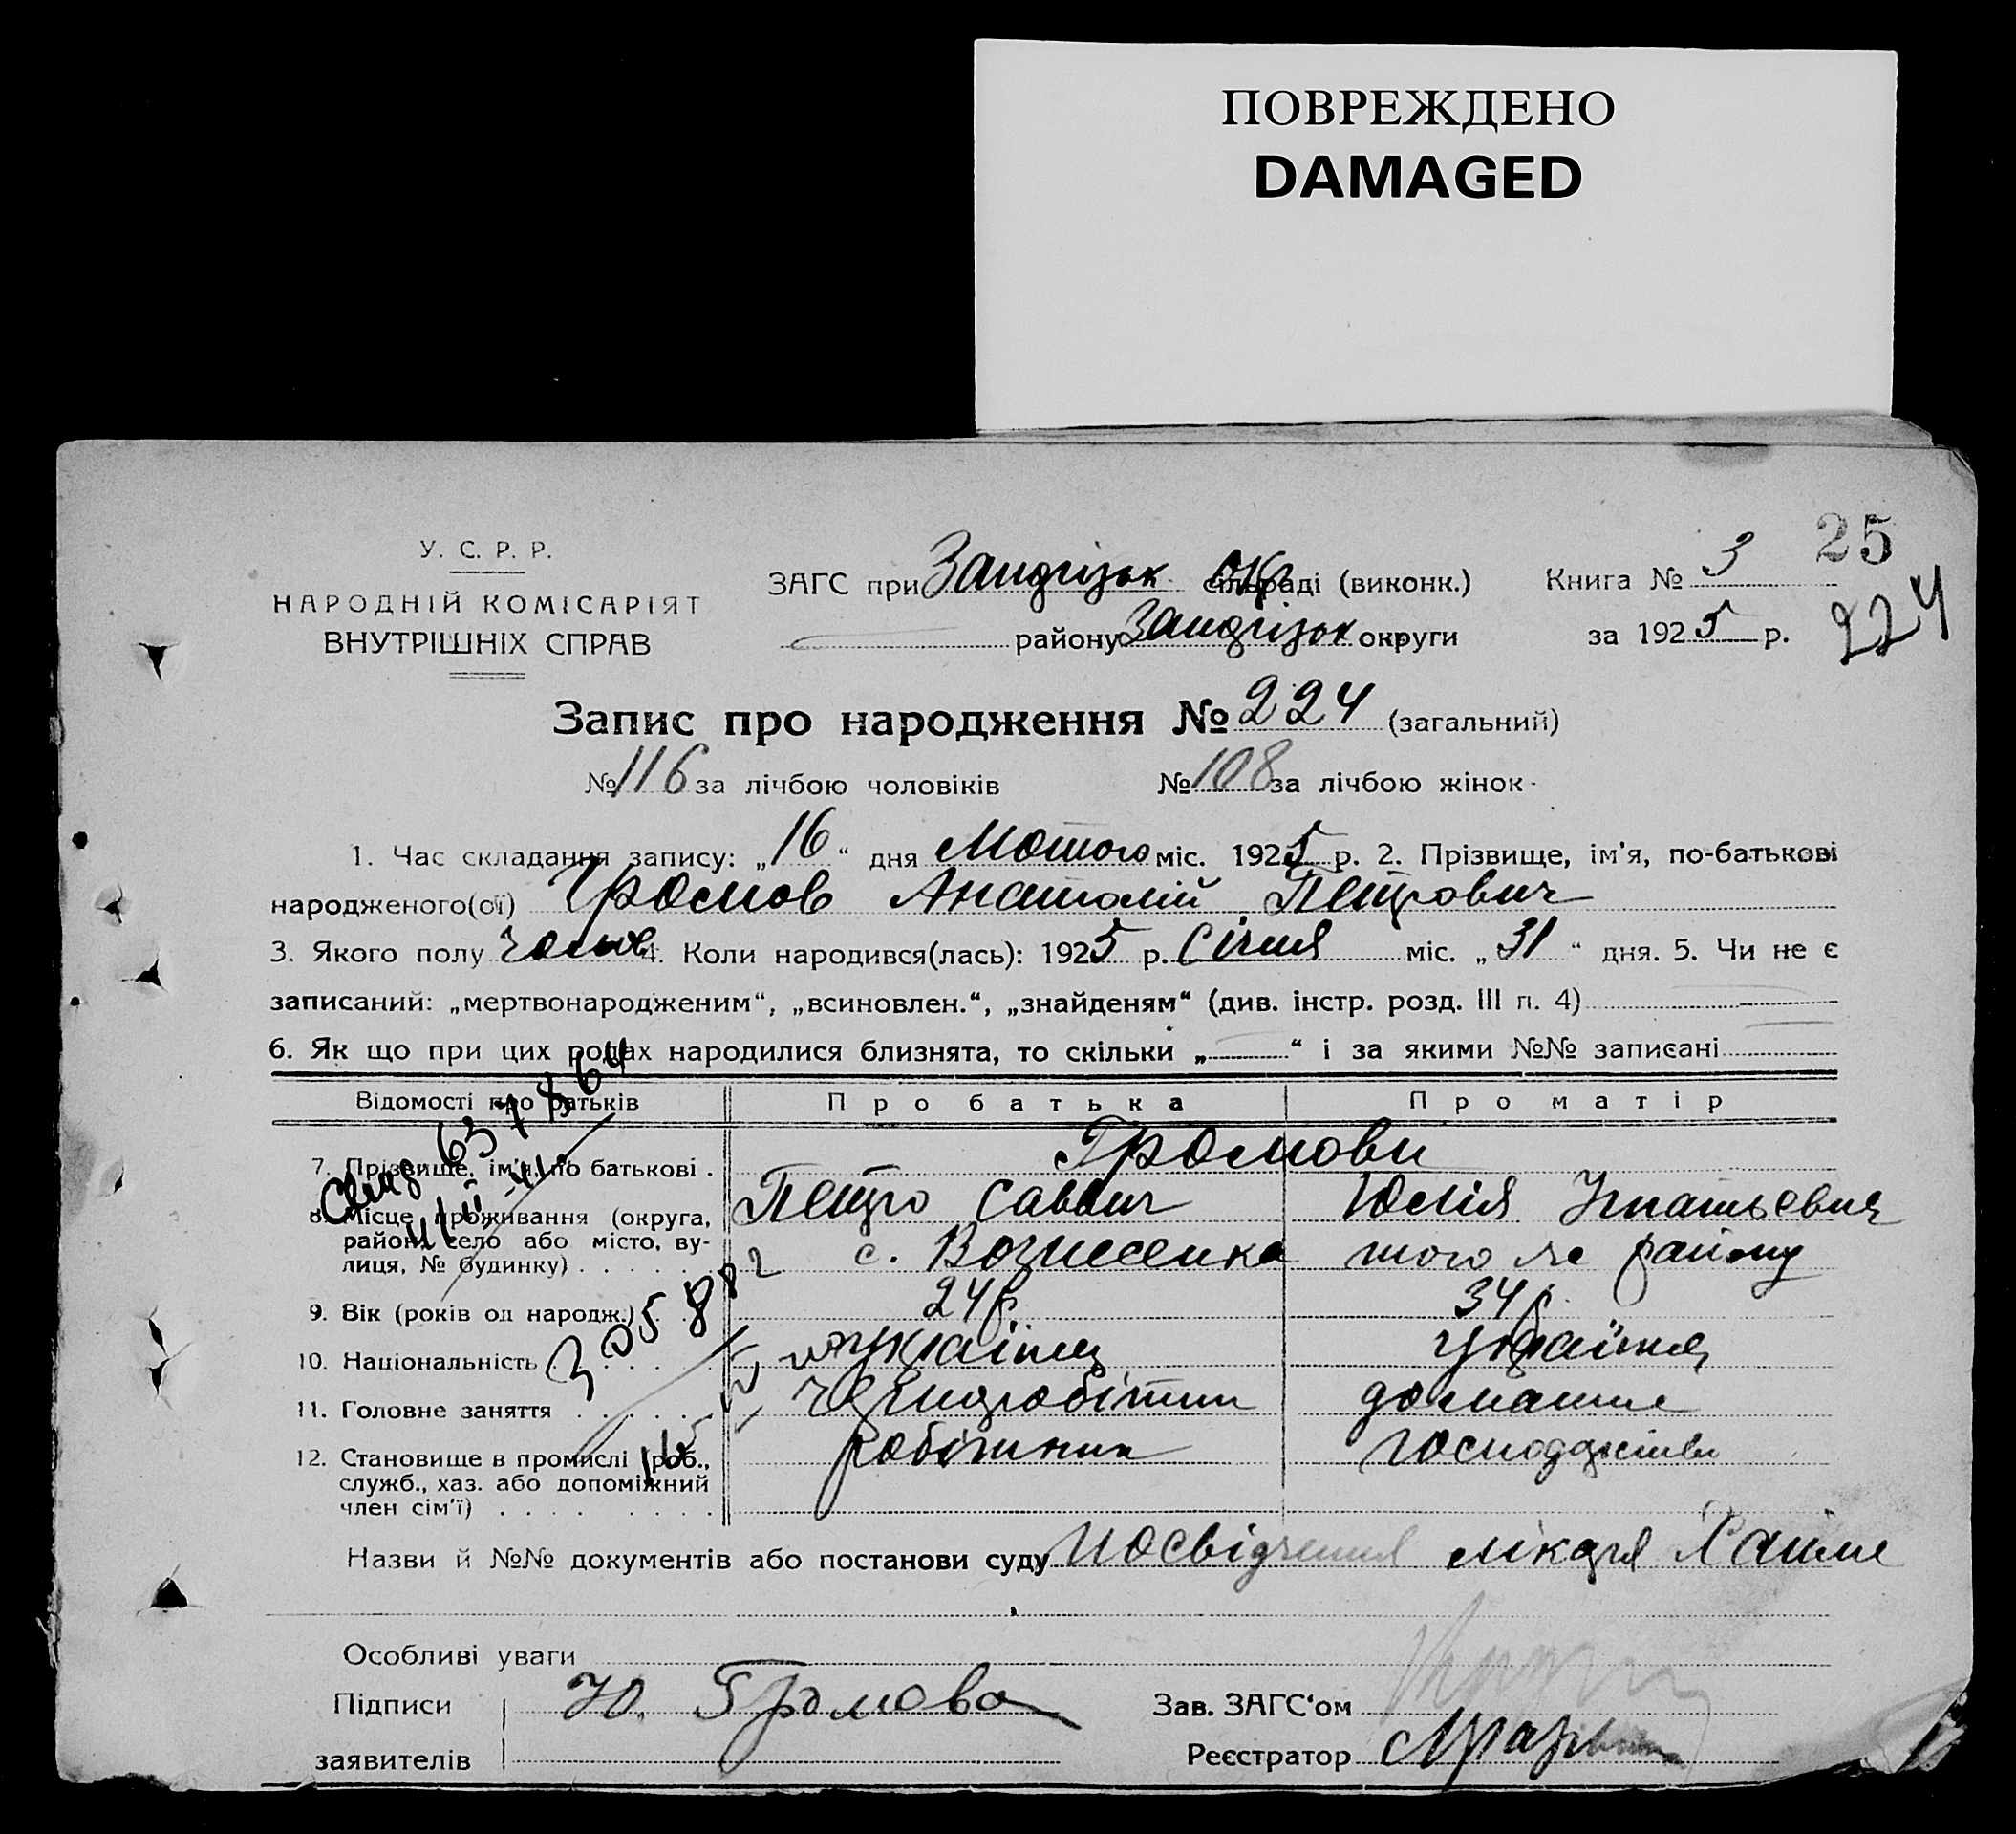 ПОВРЕЖДЕНО
DAMAGED
25
У. С. Р. Р.
НАРОДНІЙ КОМІСАРІЯТ
ВНУТРІШНІХ СПРАВ
ЗАГС при сільраді (виконк.) Книга № 3
району округи за 1925 р.
224
Запис про народження № 224 (загальний)
№ 116 за лічбою чоловіків № 108 за лічбою жінок
1. Час складання запису: „16“ дня Лютого міс. 1925 р. 2. Прізвище, ім'я, по-батькові
народженого(ої) Громов Анатолій Петрович
3. Якого полу чолов 4. Коли народився(лась): 1925 р. Січня міс. „31“ дня. 5. Чи не є
записаний: „мертвонародженим“, „всиновлен.“, „знайденям“ (див. інстр. розд. III п. 4)
6. Як що при цих родах народилися близнята, то скільки „ “ і за якими №№ записані
Відомості про батьків Про батька Про матір
7. Прізвище, ім'я, по батькові . Громови
Петро Саввич Юлія Игнатьевич
8. Місце проживання (округа,
район, село або місто, ву-
лиця, № будинку) с. Вознесенка того же району
9. Вік (років од народж.) 24 р. 34 р.
10. Національність українец українка
11. Головне заняття чернороб домашне
12. Становище в промислі (роб., робітник господарство
служб., хаз. або допоміжний
член сім'ї)
Назви й №№ документів або постанови суду посвідчення лікаря
Особливі уваги
Підписи Ю. Громова Зав. ЗАГС'ом
заявителів Реєстратор